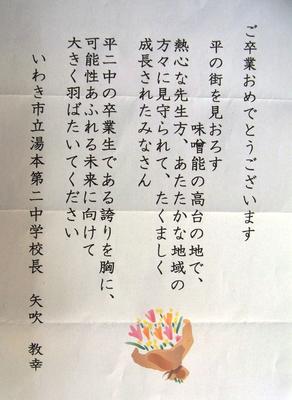 ご卒業おめでとうございます
平の街を見おろす
味噌能の高台の地で、
熱心な先生方、あたたかな地域の
方々に見守られて、たくましく
成長されたみなさん
平二中の卒業生である誇りを胸に、
可能性あふれる未来に向けて
大きく羽ばたいてください
いわき市立湯本第二中学校長　矢吹　教幸